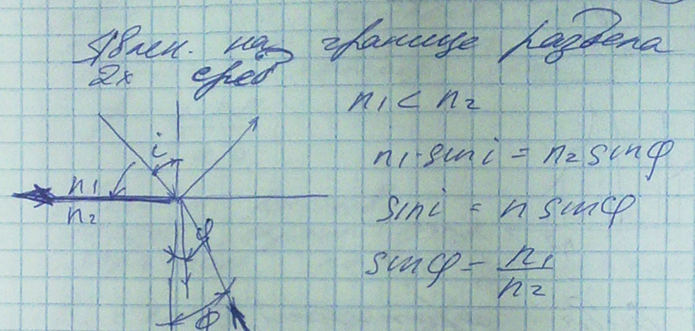 Явлен. на границе раздела
2х сред
n₁ < n₂
n₁·sin i = n₂ sin φ
sin i = n sin φ
sin φ = n₁/n₂
i
n₁
n₂
φ
Φ